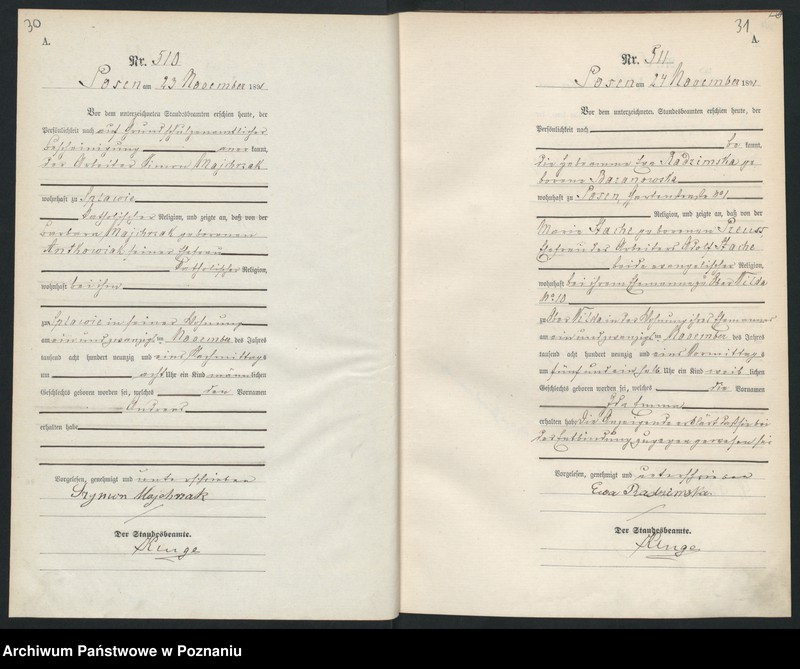 30
A.
Nr. 510
Posen am 23 November 1891
Vor dem unterzeichneten Standesbeamten erschien heute, der
Persönlichkeit nach auf Grund schulzenamtlicher
Bescheinigung anerkannt,
der Arbeiter Simon Majchrzak
wohnhaft zu Splawie
katholischer Religion, und zeigte an, daß von der
Barbara Majchrzak geborenen
Antkowiak seiner Ehefrau
katholischer Religion,
wohnhaft bei ihm
zu Splawie in seiner Wohnung
am ein und zwanzigsten November des Jahres
tausend acht hundert neunzig und eins Nachmittags
um acht Uhr ein Kind männlichen
Geschlechts geboren worden sei, welches den Vornamen
Andreas
erhalten habe
Vorgelesen, genehmigt und unterschrieben
Szymon Majchrzak
Der Standesbeamte.
Kluge
31
A.
Nr. 511
Posen am 24 November 1891
Vor dem unterzeichneten Standesbeamten erschien heute, der
Persönlichkeit nach
be kannt,
die Hebamme Eva Radzimska ge
borene Baranowska
wohnhaft zu Posen, Gartenstraße No 1
Religion, und zeigte an, daß von der
Marie Stache geborenen Preuss
Ehefrau des Arbeiters Adolf Stache
beide evangelischer Religion,
wohnhaft bei ihrem Ehemanne zu Ober Wilda
No 10
zu Ober Wilda in der Wohnung ihres Ehemannes
am ein und zwanzigsten November des Jahres
tausend acht hundert neunzig und eins Vormittags
um fünf und ein halb Uhr ein Kind weib lichen
Geschlechts geboren worden sei, welches die Vornamen
Ida Emma
erhalten habe Die Anzeigende erklärt daß sie bei
der Entbindung zugegen gewesen sei
Vorgelesen, genehmigt und unterschrieben
Ewa Radzimska
Der Standesbeamte.
Kluge
Archiwum Państwowe w Poznaniu